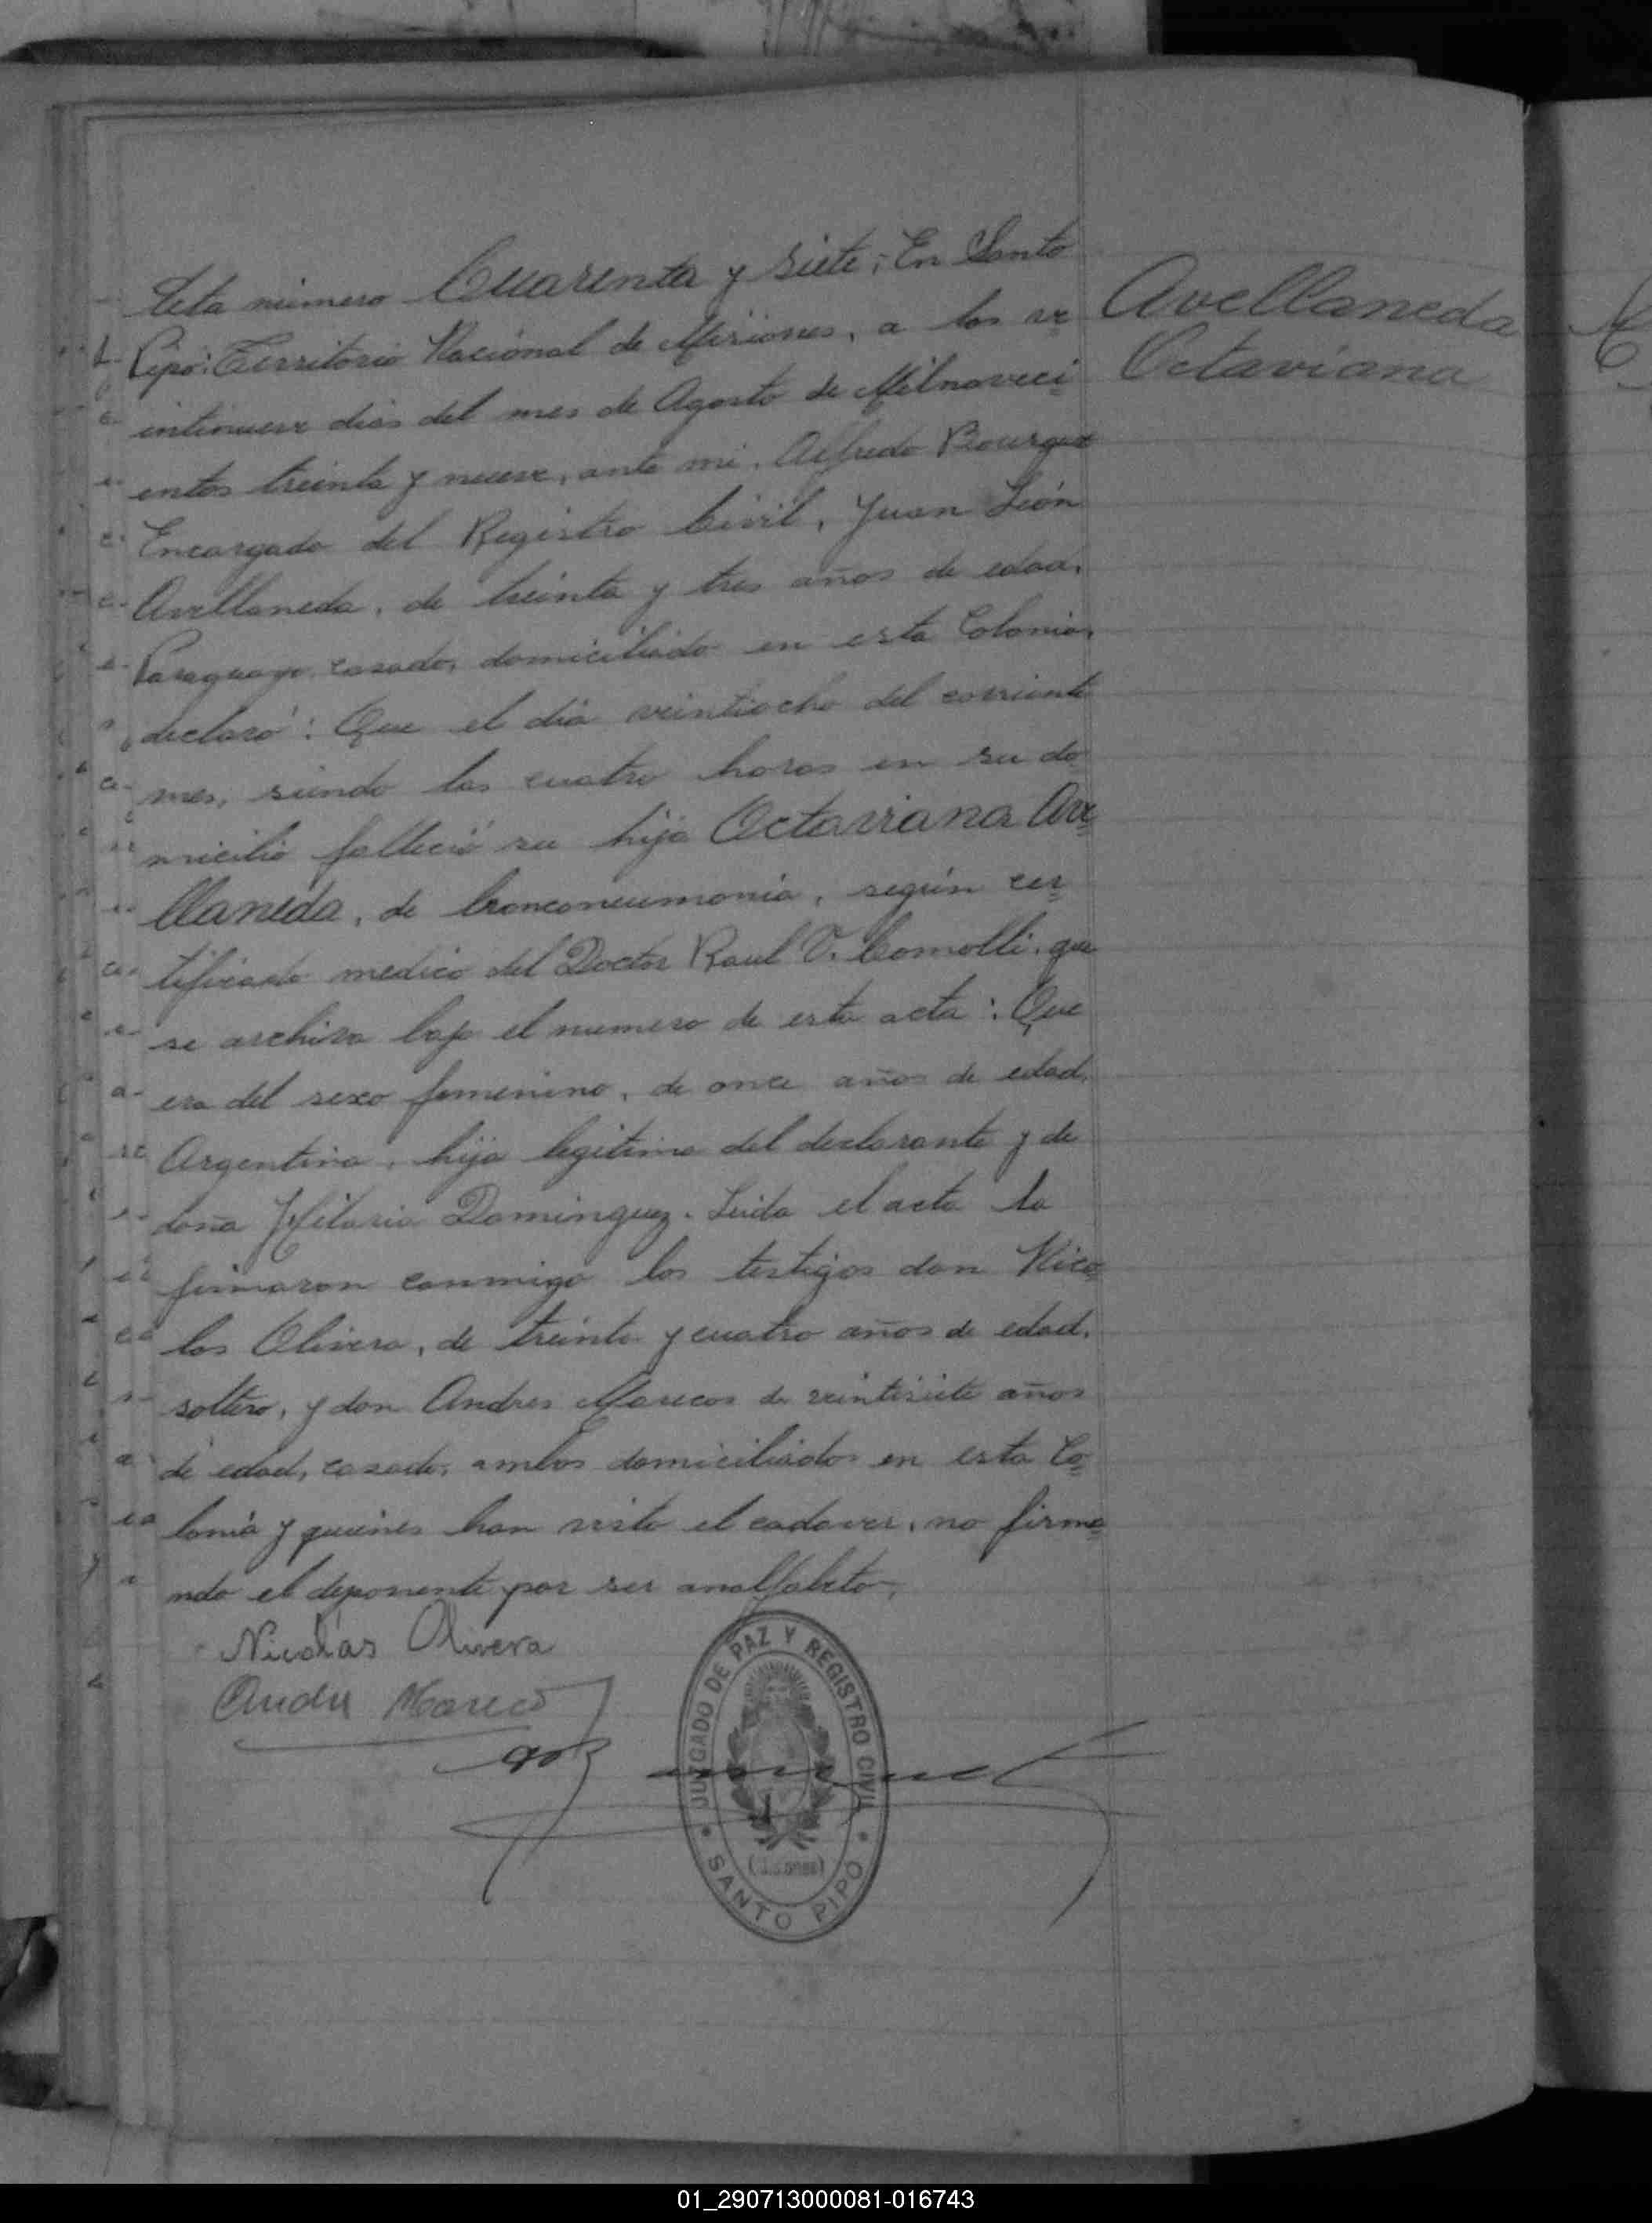 Acta número Cuarenta y siete; En Santo
Pipó: Territorio Nacional de Misiones, a los ve
intinueve dias del mes de Agosto de Milnoveci
entos treinta y nueve, ante mi, Alfredo Bourquet
Encargado del Registro Civil, Juan León
Avellaneda, de treinta y tres años de edad,
Paraguayo, casado, domiciliado en esta Colonia,
declaró: Que el día veintiocho del corriente
mes, siendo las cuatro horas en su do
micilio falleció su hija Octaviana Ave
llaneda, de bronconeumonia, según cer
tificado medico del Doctor Raul V. Comolli, que
se archiva bajo el numero de esta acta: Que
era del sexo femenino, de once años de edad,
Argentina, hija legitima del declarante y de
doña Hilaria Dominguez. Leida el acta la
firmaron conmigo los testigos don Nico
las Olivera, de treinta y cuatro años de edad,
soltero, y don Andres Marecos de veintisiete años
de edad, casado, ambos domiciliados en esta Co
lonia y quienes han visto el cadaver, no firma
ndo el deponente por ser analfabeto.
Avellaneda
Octaviana
Nicolás Olivera
Andre Mareco
JUZGADO DE PAZ Y REGISTRO CIVIL
SANTO PIPO
01_290713000081-016743